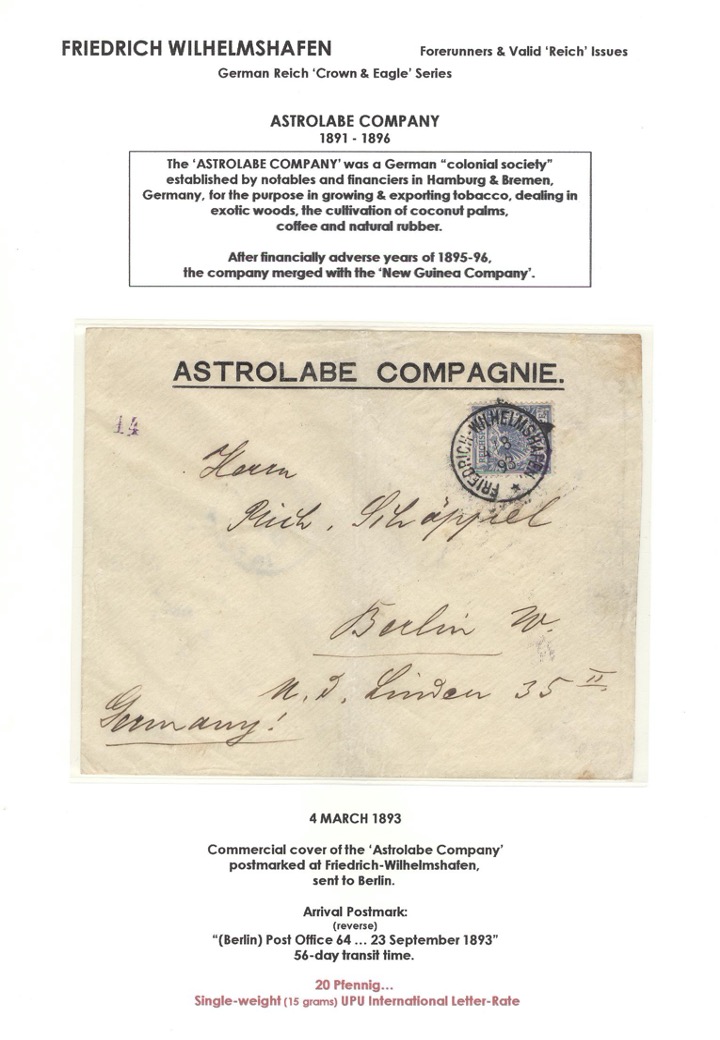 FRIEDRICH WILHELMSHAFEN Forerunners & Valid ‘Reich’ Issues
German Reich ‘Crown & Eagle’ Series
ASTROLABE COMPANY
1891 - 1896
The ‘ASTROLABE COMPANY’ was a German “colonial society”
established by notables and financiers in Hamburg & Bremen,
Germany, for the purpose in growing & exporting tobacco, dealing in
exotic woods, the cultivation of coconut palms,
coffee and natural rubber.
After financially adverse years of 1895-96,
the company merged with the ‘New Guinea Company’.
ASTROLABE COMPAGNIE.
14
FRIEDRICH-WILHELMSHAFEN
8
93
Herrn
Rich. Schöppiel
Berlin W.
U. d. Linden 35 II
Germany!
4 MARCH 1893
Commercial cover of the ‘Astrolabe Company’
postmarked at Friedrich-Wilhelmshafen,
sent to Berlin.
Arrival Postmark:
(reverse)
“(Berlin) Post Office 64 ... 23 September 1893”
56-day transit time.
20 Pfennig...
Single-weight (15 grams) UPU International Letter-Rate